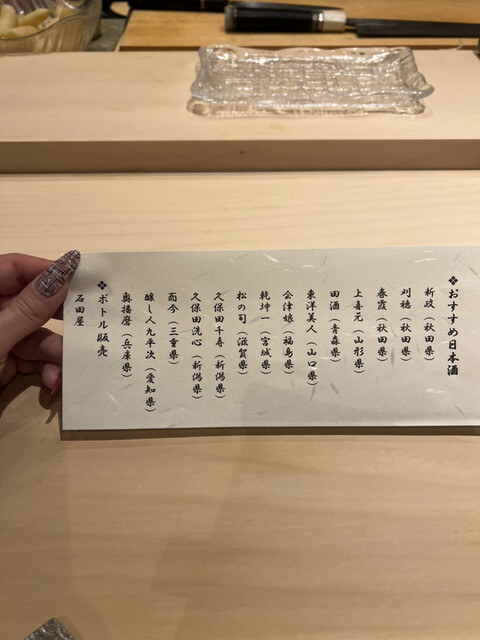 ❖おすすめ日本酒
新政（秋田県）
刈穂（秋田県）
春霞（秋田県）
上喜元（山形県）
田酒（青森県）
東洋美人（山口県）
会津娘（福島県）
乾坤一（宮城県）
松の司（滋賀県）
久保田千寿（新潟県）
久保田洗心（新潟県）
而今（三重県）
醸し人九平次（愛知県）
奥播磨（兵庫県）
❖ボトル販売
石田屋